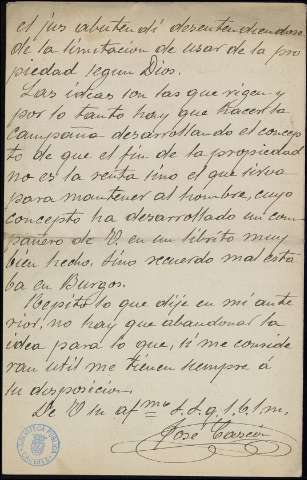 el jus abutendi desentendiendose
de la limitacion de usar de la pro
piedad segun Dios.
Las ideas son las que rigen y
por lo tanto hay que hacer la
campaña desarrollando el concep
to de que el fin de la propiedad
no es la renta sino el que sirva
para mantener al hombre, cuyo
concepto ha desarrollado un com
pañero de V. en un librito muy
bien hecho. Sino recuerdo mal esta
ba en Burgos.
Repito lo que dije en mi ante
rior, no hay que abandonar la
idea para lo que, si me conside
ran util me tienen siempre á
su disposicion.
De V su afmo S. S. q. s. b. s. m.
José
BIBLIOTECA